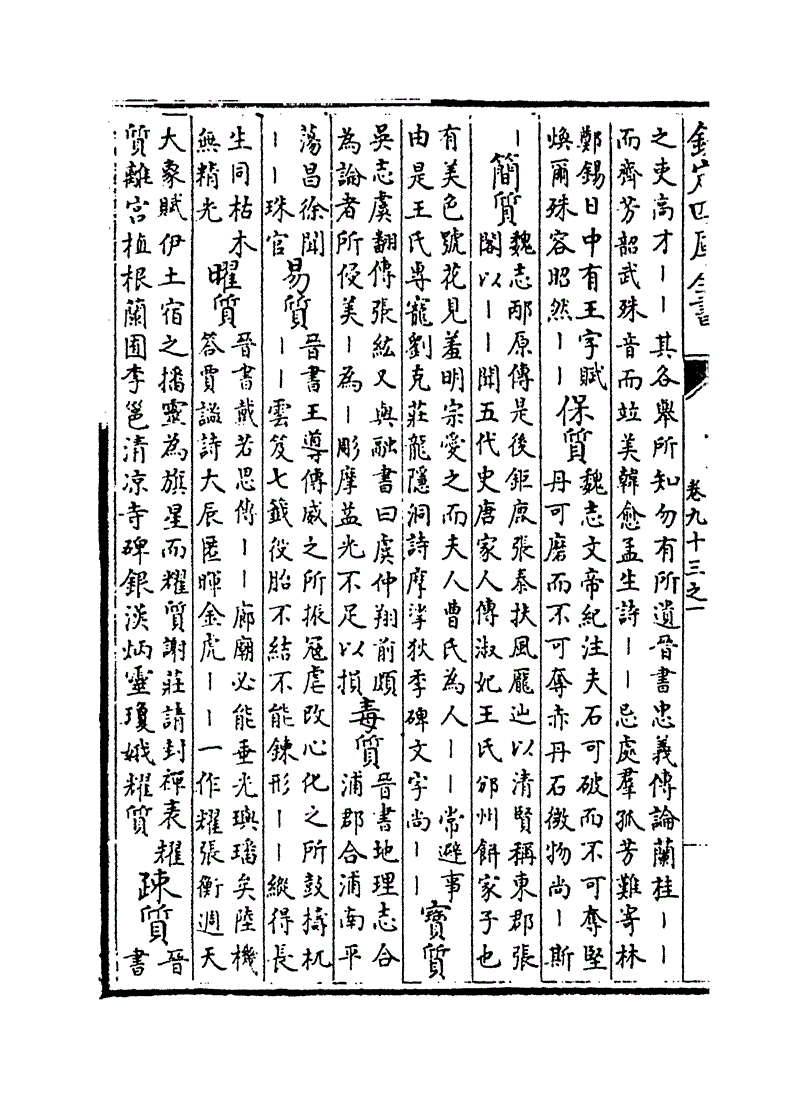 欽定四庫全書
卷九十三之一
之吏高才――其各舉所知勿有所遺晉書忠義傳論蘭桂――
而齊芳韶武殊音而竝美韓愈孟生詩――忌處羣孤芳難寄林
鄭錫日中有王字賦
煥爾殊容昭然――
保質
魏志文帝紀注夫石可破而不可奪堅
丹可磨而不可奪赤丹石微物尚―斯
―
簡質
魏志邴原傳是後鉅鹿張泰扶風龐迪以清賢稱東郡張
閣以――聞五代史唐家人傳淑妃王氏邠州餅家子也
有美色號花見羞明宗愛之而夫人曹氏為人――常避事
由是王氏專寵劉克莊龍隱洞詩摩挲狄季碑文字尚――
寶質
吳志虞翻傳張紘又與融書曰虞仲翔前頗
為論者所侵美―為―彫摩益光不足以損
毒質
晉書地理志合
浦郡合浦南平
蕩昌徐聞
――珠官
易質
晉書王導傳威之所振冠虐改心化之所鼓檮杌
――雲笈七籤役胎不結不能鍊形――縱得長
生同枯木
無精光
曜質
晉書戴若思傳――廊廟必能垂光璵璠矣陸機
答賈謐詩大辰匿暉金虎――一作耀張衡週天
大象賦伊土宿之播靈為旗星而耀質謝莊請封禪表耀
質離宮植根蘭囿李邕清凉寺碑銀漢炳靈瓊娥耀質
疎質
晉
書